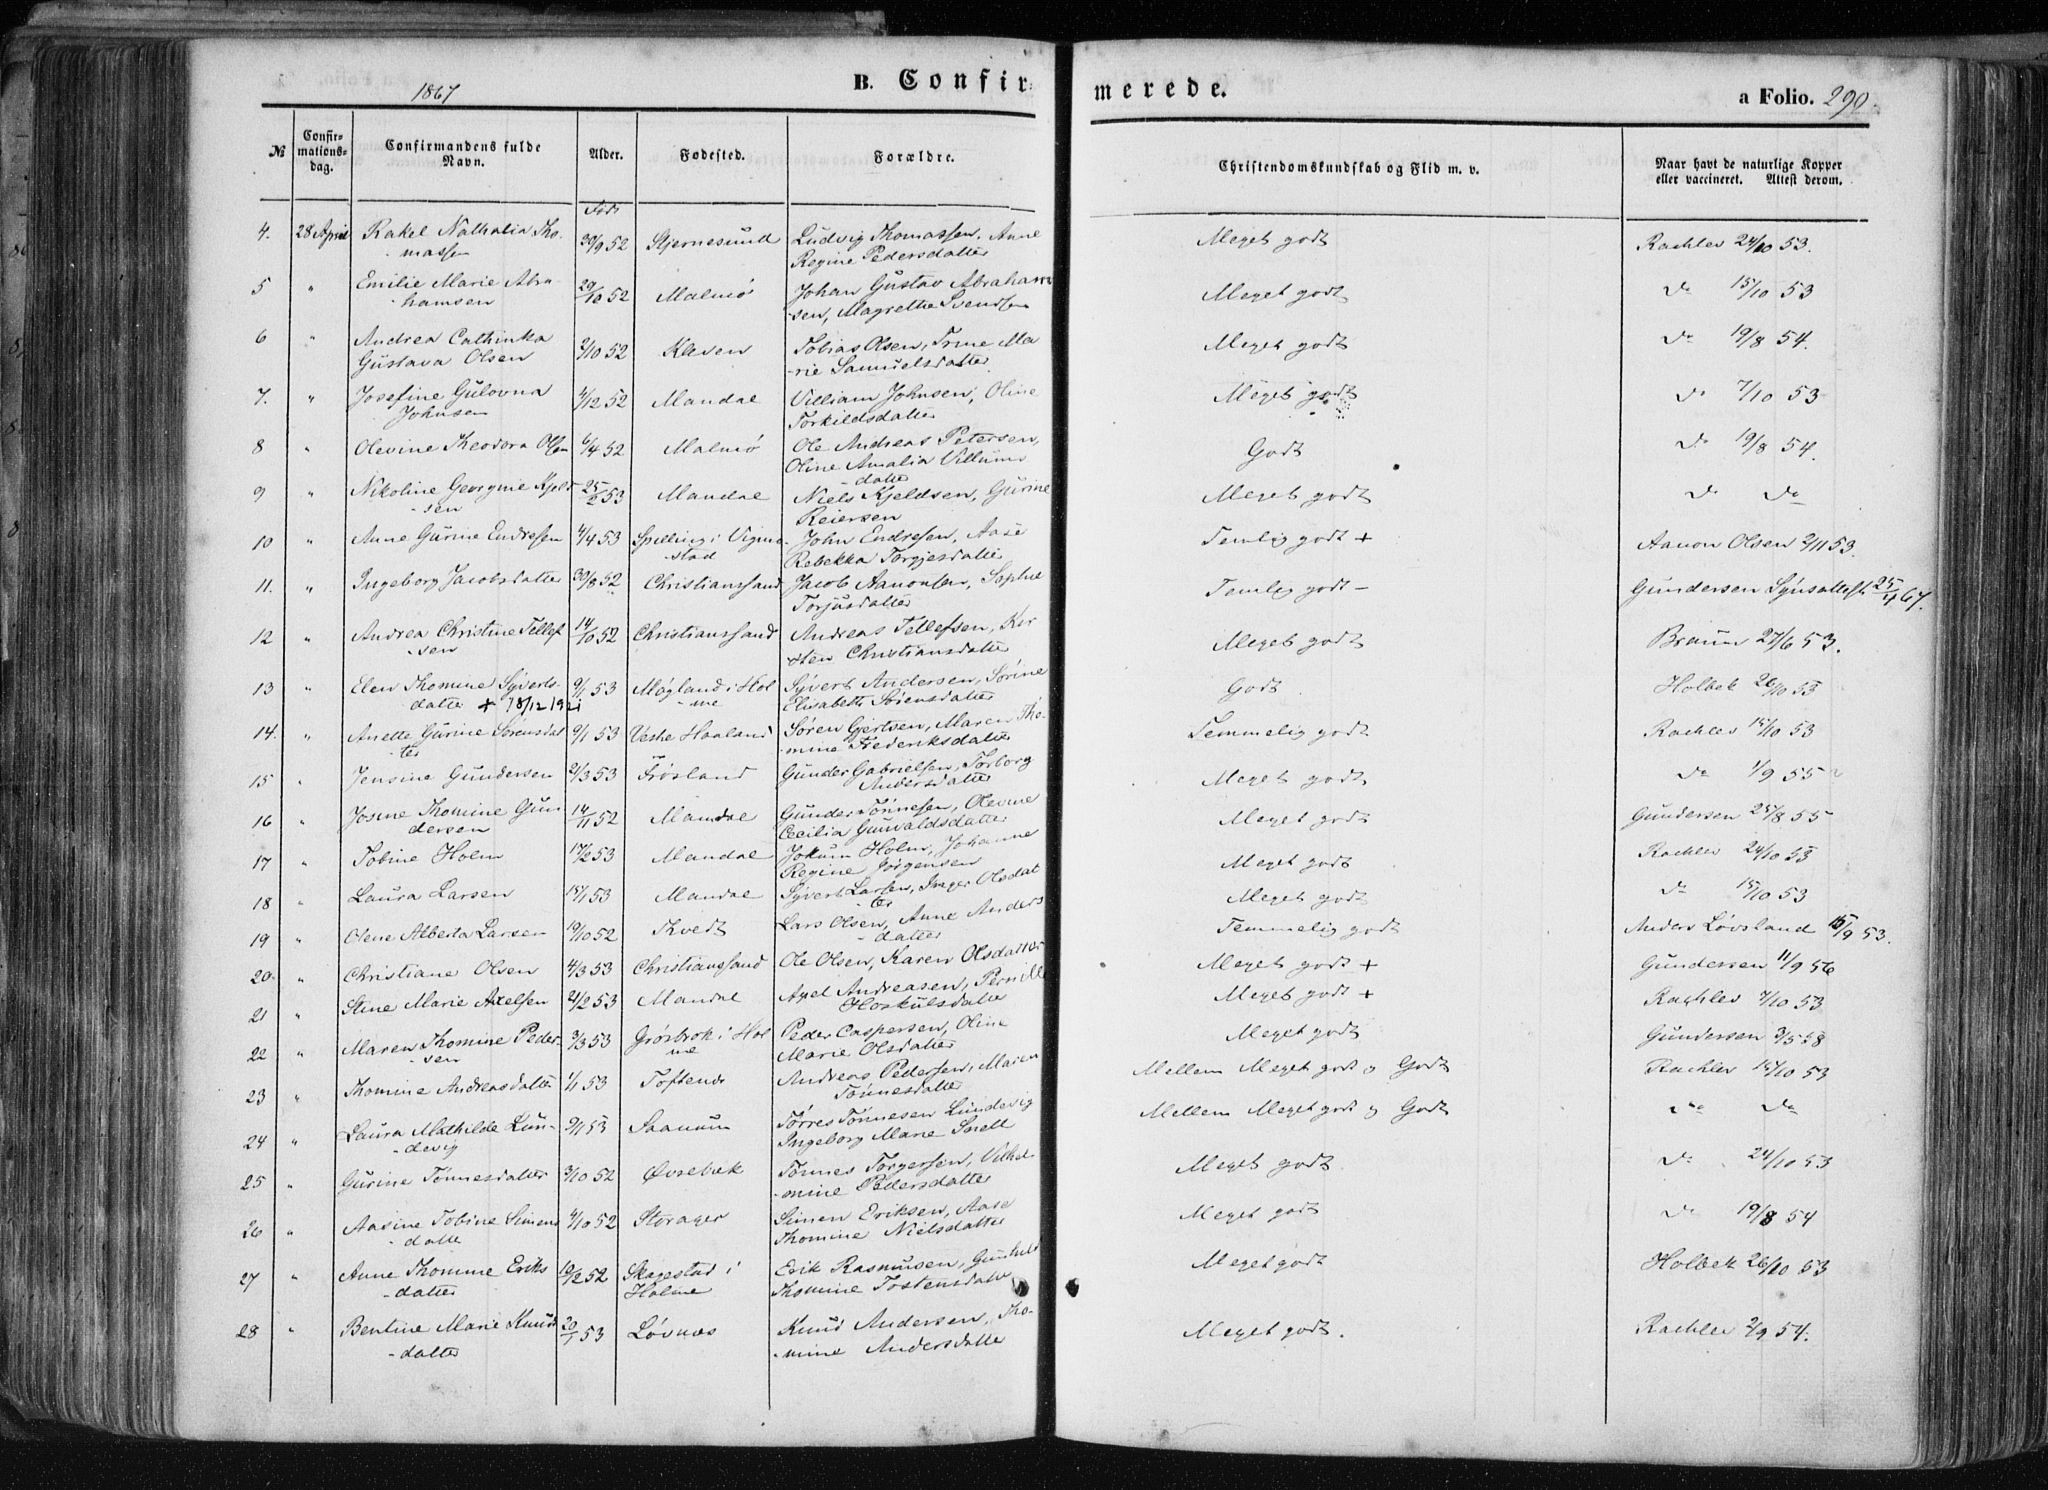 1867 B. Confirmerede. a Folio. 290.
№ Confirmationsdag. Confirmandens fulde Navn. Alder. Fødested. Forældre. Christendomskundskab og Flid m. v. Naar havt de naturlige Kopper eller vaccineret. Attest derom.
4. 28 April Rakel Nathalia Tho- 30/9 52 Stjernesund Ludvig Thomassen, Anne Meget godt Rachlev 24/10 53.
-massen Regine Pedersdatter
5 " Emilie Marie Abra- 29/10 52 Malmø Johan Gustav Abraham Meget godt do 15/10 53
-hamsen -sen, Magrethe Svendsen
6 " Andrea Cathinka 2/10 52 Kleven Tobias Olsen, Trine Ma Meget godt do 19/8 54.
Gustava Olsen -rie Samuelsdatter
7. " Josefine Gulovna 4/12 52 Mandal Villiam Johnsen, Oline Meget godt do 7/10 53
Johnsen Torkildsdatter
8 " Olevine Theodora Olsen 6/4 52 Malmø Ole Andreas Petersen, Godt do 19/8 54.
Oline Amalia Villums
-datter
9 " Nikoline Georgine Kjeld 25/2 53 Mandal Niels Kjeldsen, Gurine Meget godt do do
-sen Reiersen
10 " Anne Gurine Endresen 4/4 53 Spilling i Vigmo- John Endresen, Aase Temlig godt + Aanon Olsen 2/11 53.
stad Rebekka Torgjesdatter
11. " Ingeborg Jacobsdatter 30/8 52 Christianssand Jacob Aanonsen, Sophie Temlig godt - Gundersen Synsattest 25/4 67.
Torjusdatter
12 " Andrea Christine Tellef 14/10 52 Christianssand Andreas Tellefsen, Kir Meget godt Braun 27/6 53.
-sen sten Christiansdatter
13 " Elen Thomine Syverts- 9/1 53 Møgland i Hol Syvert Andersen, Sørine Godt Holbek 26/10 53
datter + 18/12 1921 -me Elisabeth Sørensdatter
14. " Anette Gurine Sørensdat 9/1 53 Vestre Haaland Søren Gjertsen, Maren Tho- Temmelig godt Rachlev 15/10 53
-ter -mine Frederiksdatter
15 " Jensine Gundersen 21/3 53 Frøsland Gunder Gabrielsen, Torborg Meget godt do 1/9 55
Andersdatter
16 " Josine Thomine Gun 14/11 52 Mandal Gunder Tønnesen, Olevine Meget godt Gundersen 25/8 55
dersen Cecilia Gunvaldsdatter
17 " Tobine Holm 17/2 53 Mandal Jokum Holm, Johanne Meget godt Rachlev 24/10 53
Regine Jørgensen
18 " Laura Larsen 15/1 53 Mandal Syvert Larsen, Inger Olsdat Meget godt do 15/10 53
-ter
19 " Olene Alberta Larsen 19/10 52 Kvedt Lars Olsen, Anne Anders Temmelig godt Anders Løvsland 15/9 53.
-datter
20. " Christiane Olsen 4/3 53 Christianssand Ole Olsen, Karen Olsdatter Meget godt + Gundersen 11/9 56
21 " Stine Marie Axelsen 21/2 53 Mandal Axel Andreasen, Pernille Meget godt + Rachlev 7/10 53
Hoskulsdatter
22 " Maren Thomine Peder- 3/3 53 Grøsbrok i Hol Peder Caspersen, Oline Meget godt Gundersen 3/5 58
-sen me Marie Olsdatter
23 " Thomine Andreasdatter 1/1 53 Toftenes Andreas Pedersen, Maren Mellem Meget godt o Godt Rachlev 15/10 53
Tønnesdatter
24 " Laura Mathilde Lun- 9/1 53 Saanum Tørres Tønnesen Lundevig Mellem Meget godt og Godt do do
-devig Ingeborg Marie Snell
25 " Gurine Tønnesdatter 3/10 52 Øvrebæk Tønnes Torgersen, Vilhel Meget godt. do 24/10 53
-mine Pedersdatter
26 " Aasine Tobine Simens 4/10 52 Storager Simen Eriksen, Aase Meget godt do 19/8 54
-datter Thomine Nielsdatter
27 " Anne Thomine Eriks 19/2 52 Skagestad i Erik Rasmusen, Gunhild Meget godt Holbek 26/10 53
-datter Holme Thomine Tostensdatter
28 " Bentine Marie Knuds 20/1 53 Løvnæs Knud Andersen, Tho- Meget godt. Rachlev 2/9 54.
-datter -mine Andersdatter